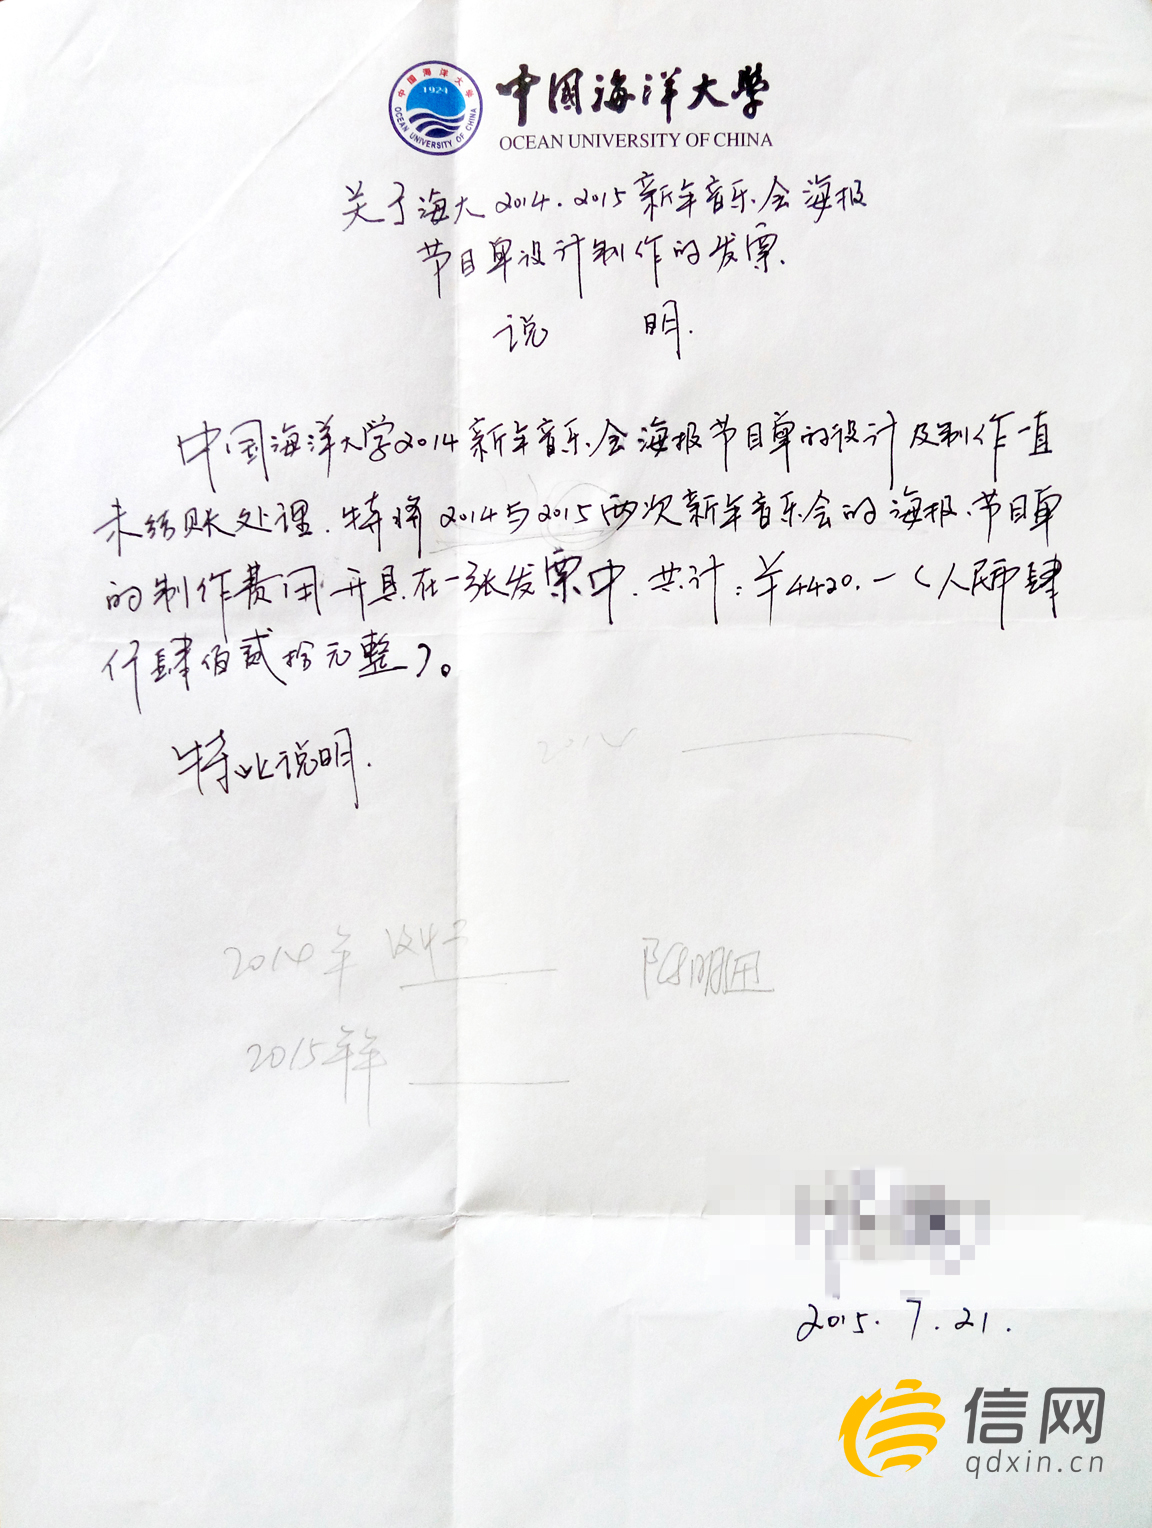 中国海洋大学
1924
OCEAN UNIVERSITY OF CHINA
中国海洋大学
OCEAN UNIVERSITY OF CHINA
关于海大2014.2015新年音乐会海报
节目单设计制作的发票.
说 明.
中国海洋大学2014新年音乐会海报节目单的设计及制作一直
未结账处理.特将2014与2015两次新年音乐会的海报、节目单
的制作费用开具在一张发票中.共计:￥4420.一(人民币肆
仟肆佰贰拾元整)。
特此说明.
2014
2014年
2015年年
2015.7.21.
信网
qdxin.cn